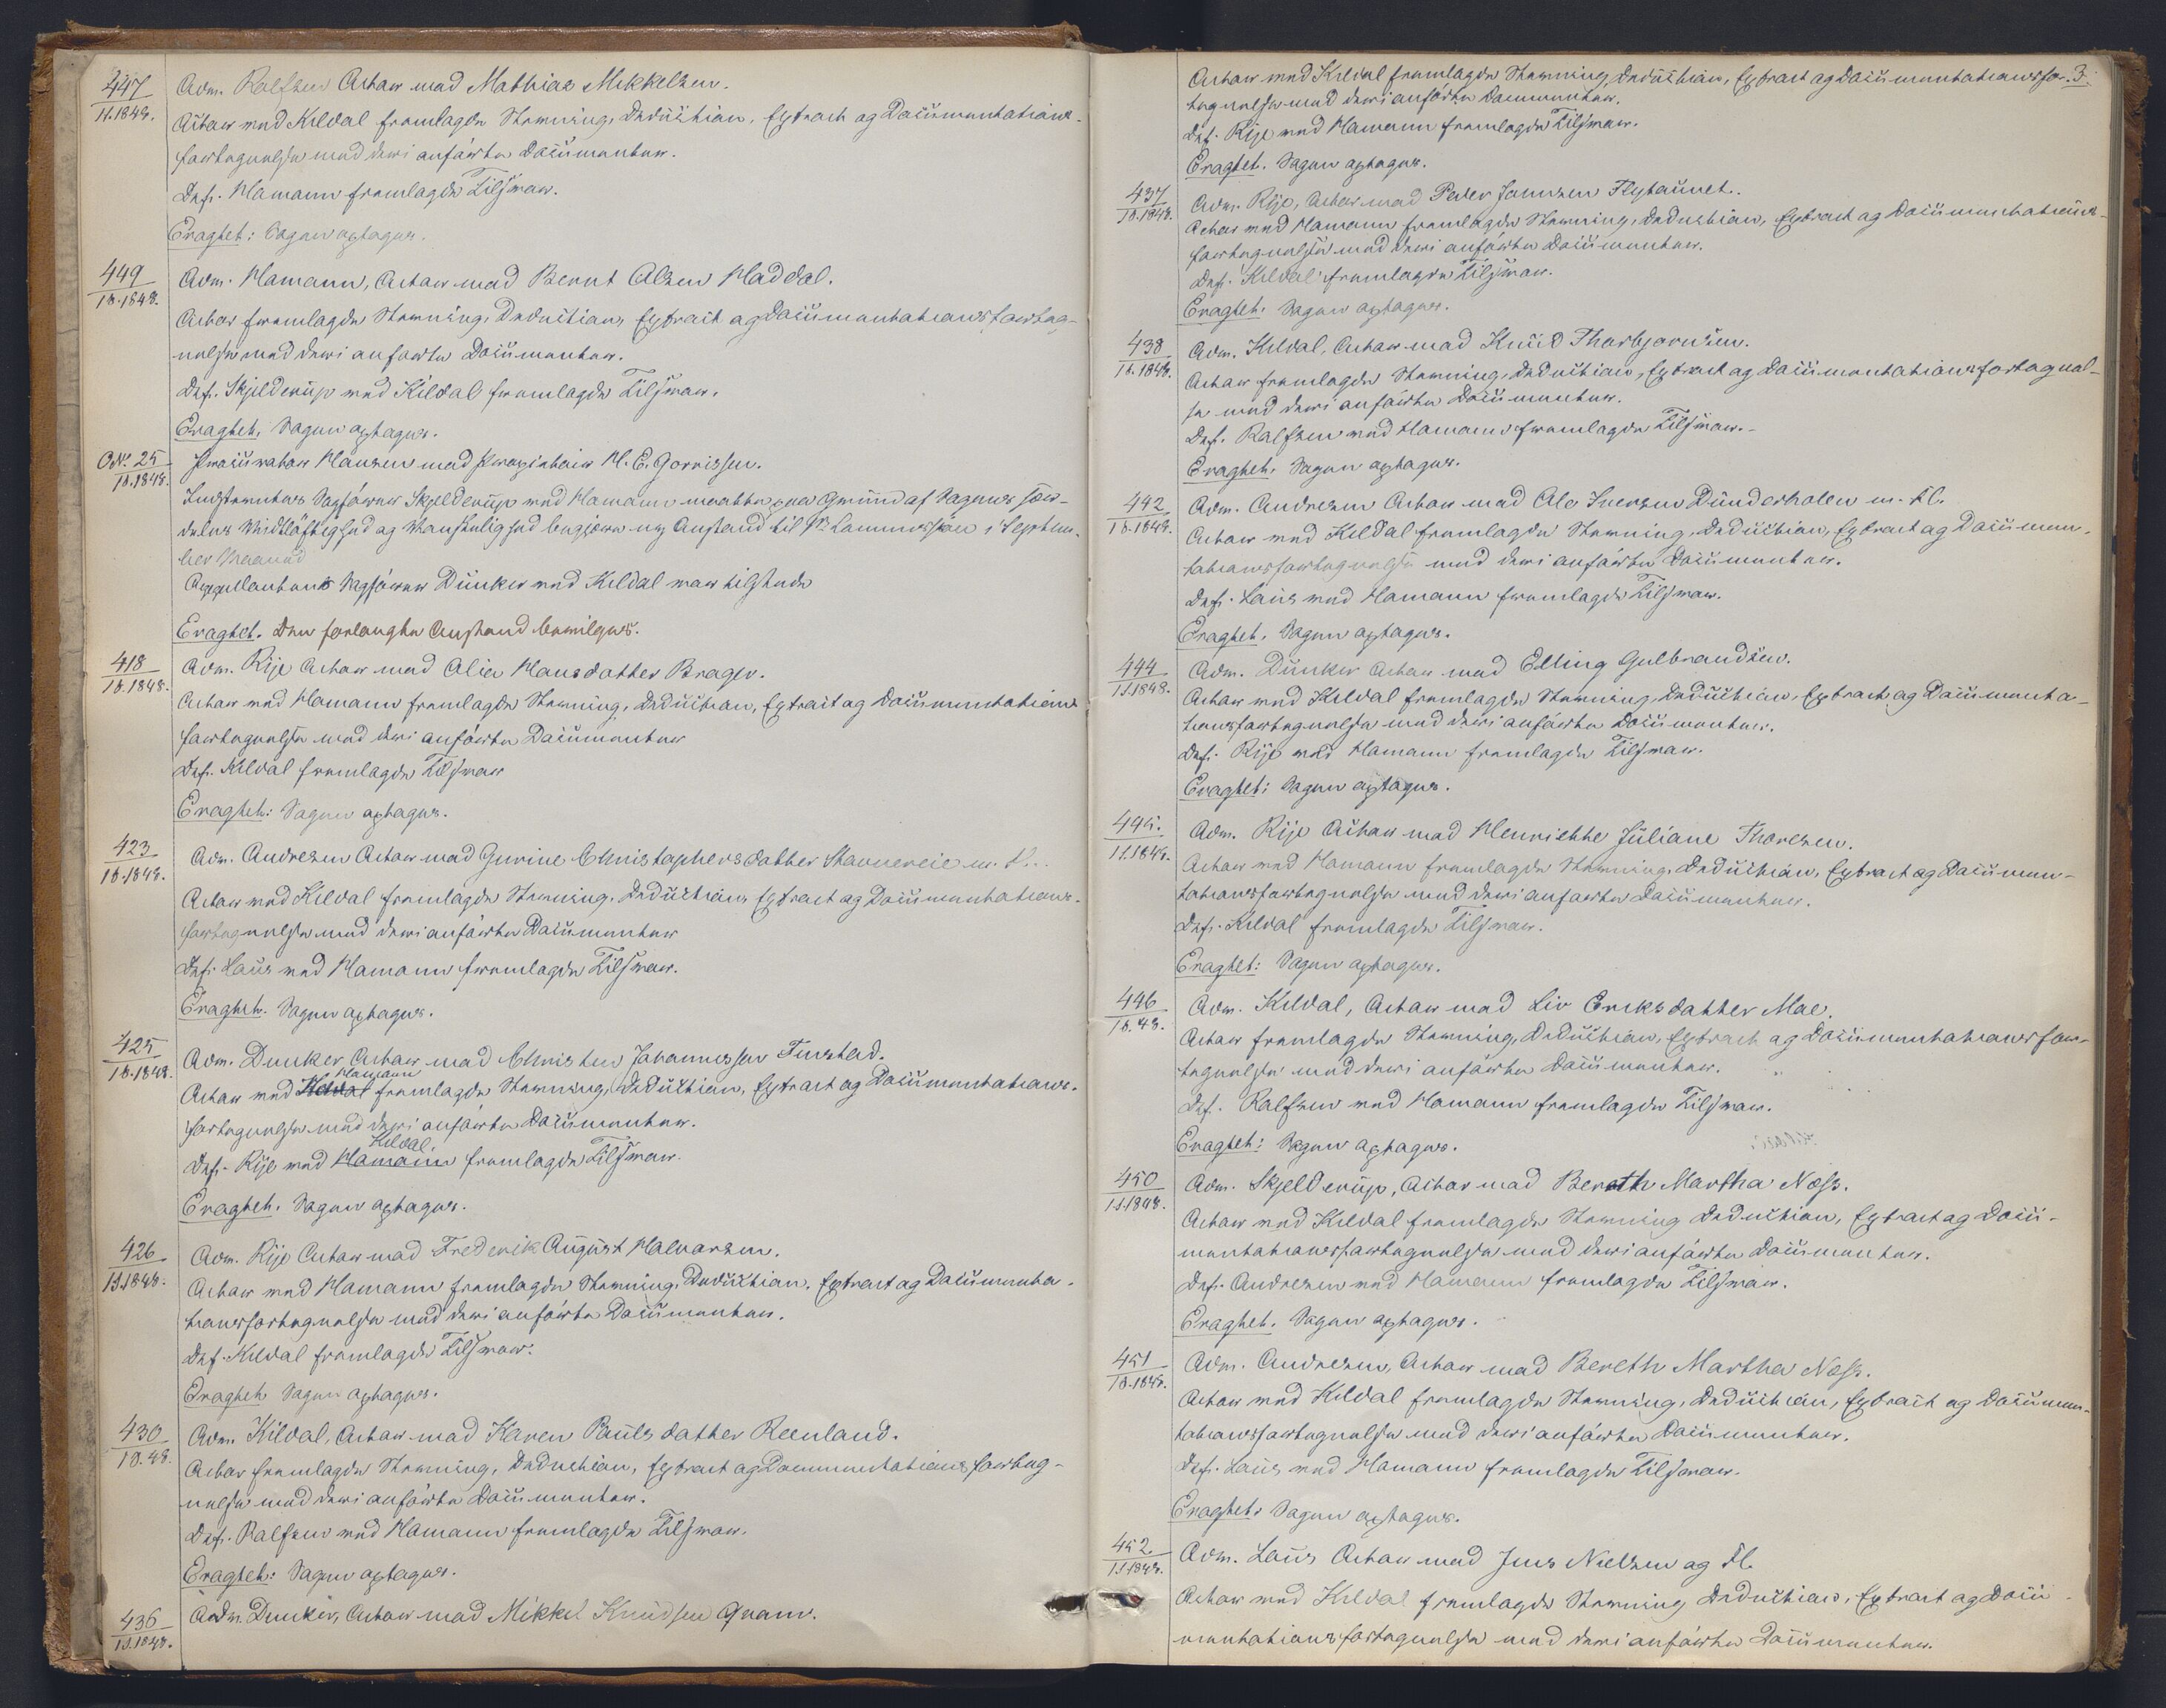 447
11.1848.
Adv. Rolfsen Actor mod Mathias Mikkelsen.
Actor ved Kildal fremlagde Stævning, Deduction, Extract og Documentations-
fortegnelse med deri anførte Documenter.
Def. Hamann fremlagde Tilsvar.
Eragtet: Sagen optages.
449
1 b. 1848.
Adv. Hamann, Actor mod Bernt Olsen Haddal.
Actor fremlagde Stævning, Deduction, Extract og Documentationsforteg-
nelse med deri anførte Documenter.
Def. Skjelderup ved Kildal fremlagde Tilsvar.
Eragtet, Sagen optages.
O No. 25
1 b. 1848.
Procurator Hansen mod Proprietair H. E. Gorrissen.
Citantens Sagfører Skjelderup ved Hamann maatte paa Grund af Sagens sær-
deles Vidtløftighed og Vanskelighed begjære ny Anstand til 1ste Lammession i Septem-
ber Maaned
Appellantens Sagfører Dunker ved Kildal var tilstede
Eragtet. Den forlangte Anstand bevilges.
418
1 b. 1848.
Adv. Rije Actor mod Olea Hansdatter Brager.
Actor ved Hamann fremlagde Stævning, Deduction, Extract og Documentations
fortegnelse med deri anførte Documenter
Def. Kildal fremlagde Tilsvar
Eragtet: Sagen optages.
423
1 b. 1848.
Adv. Andresen Actor mod Gurine Christophersdatter Stavnereie m. Fl.
Actor ved Kildal fremlagde Stævning, Deduction, Extract og Documentations-
fortegnelse med deri anførte Documenter
Def. Laus ved Hamann fremlagde Tilsvar.
Eragtet. Sagen optages.
425
1 b. 1848.
Adv. Dunker Actor mod Christen Johannessen Finstad.
Hamann
Actor ved Kildal fremlagde Stævning, Deduction, Extract og Documentations-
fortegnelse med deri anførte Documenter.
Kildal
Def. Rije ved Hamann fremlagde Tilsvar.
Eragtet. Sagen optages.
426
1 b. 1848.
Adv. Rije Actor mod Frederik August Halvorsen.
Actor ved Hamann fremlagde Stævning, Deduction, Extract og Documenta-
tionsfortegnelse med deri anførte Documenter.
Def. Kildal fremlagde Tilsvar.
Eragtet Sagen optages.
430
1 b. 48.
Adv. Kildal, Actor mod Karen Paulsdatter Reenland.
Actor fremlagde Stævning, Deduction, Extract og Documentationsforteg-
nelse med deri anførte Documenter.
Def. Rolfsen ved Hamann fremlagde Tilsvar.
Eragtet: Sagen optages.
436
1 b. 1848.
Adv. Dunker, Actor mod Mikkel Knudsen Qvam.
3.
Actor ved Kildal fremlagde Stævning, Deduction, Extract og Documentationsfor-
tegnelse med deri anførte Documenter.
Def. Rije ved Hamann fremlagde Tilsvar.
Eragtet. Sagen optages.
437
1 b. 1848.
Adv. Rije, Actor mod Peder Jonsen Flytaunet.
Actor ved Hamann fremlagde Stævning, Deduction, Extract og Documentations-
fortegnelse med deri anførte Documenter.
Def. Kildal fremlagde Tilsvar.
Eragtet. Sagen optages.
438
1 b. 1848.
Adv. Kildal, Actor mod Knud Thorbjørnsen.
Actor fremlagde Stævning, Deduction, Extract og Documentationsfortegnel-
se med deri anførte Documenter.
Def. Rolfsen ved Hamann fremlagde Tilsvar.
Eragtet. Sagen optages.
442
1 b. 1848.
Adv. Andresen Actor mod Ole Iversen Dunderholen m. Fl.
Actor ved Kildal fremlagde Stævning, Deduction, Extract og Documen-
tationsfortegnelse med deri anførte Documenter.
Def. Laus ved Hamann fremlagde Tilsvar.
Eragtet, Sagen optages.
444
1 b. 1848.
Adv. Dunker Actor mod Elling Gulbrandsen.
Actor ved Kildal fremlagde Stævning, Deduction, Extract og Documenta-
tionsfortegnelse med deri anførte Documenter.
Def. Rije ved Hamann fremlagde Tilsvar.
Eragtet: Sagen optages.
445.
1 b. 1848.
Adv. Rije Actor mod Henriette Juliane Thoresen.
Actor ved Hamann fremlagde Stævning, Deduction, Extract og Documen-
tationsfortegnelse med deri anførte Documenter.
Def. Kildal fremlagde Tilsvar.
Eragtet: Sagen optages.
446
1 b. 48.
Adv. Kildal, Actor mod Liv Eriksdatter Moe.
Actor fremlagde Stævning, Deduction, Extract og Documentationsfor-
tegnelse med deri anførte Documenter.
Def. Rolfsen ved Hamann fremlagde Tilsvar.
Eragtet: Sagen optages.
450
1 b. 1848.
Adv. Skjelderup, Actor mod Bereth Martha Næss.
Actor ved Kildal fremlagde Stævning Deduction, Extract og Docu-
mentationsfortegnelse med deri anførte Documenter.
Def. Andresen ved Hamann fremlagde Tilsvar.
Eragtet. Sagen optages.
451
1 b. 1848.
Adv. Andresen, Actor mod Bereth Martha Næss.
Actor ved Kildal fremlagde Stævning, Deduction, Extract og Documen-
tationsfortegnelse med deri anførte Documenter.
Def. Laus ved Hamann fremlagde Tilsvar.
Eragtet. Sagen optages.
452
1 b. 1848.
Adv. Laus Actor mod Jens Nielsen og Fl.
Actor ved Kildal fremlagde Stævning Deduction, Extract og Docu-
mentationsfortegnelse med deri anførte Documenter.